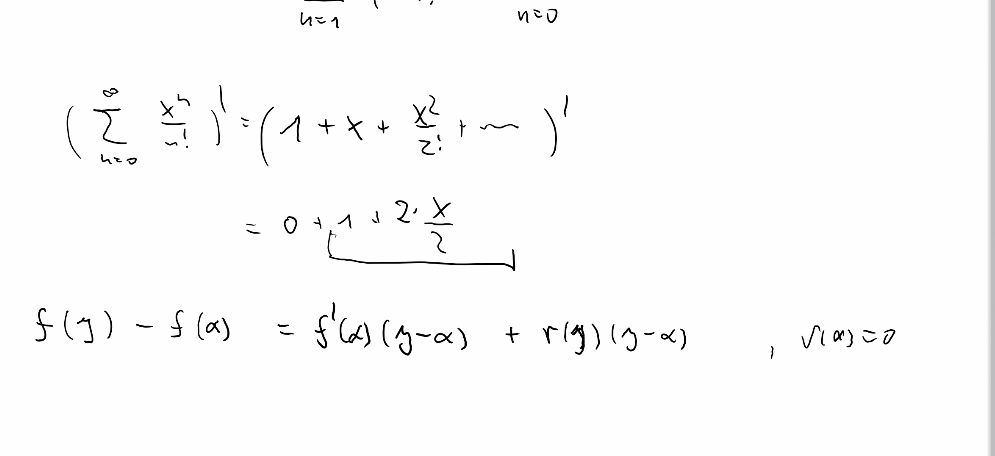 n=1 n=0
(∑_{n=0}^{∞} x^n/n!)' = (1 + x + x²/2! + ⋯)'
= 0 + 1 + 2·x/2
f(y) - f(α) = f'(α)(y-α) + r(y)(y-α) , r(α)=0